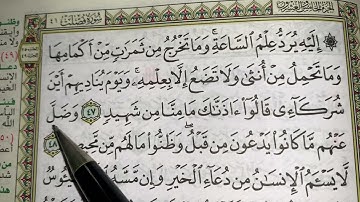 سورة فصلت ٤١
إِلَيْهِ يُرَدُّ عِلْمُ السَّاعَةِ ۚ وَمَا تَخْرُجُ مِن ثَمَرَٰتٍ مِّنْ أَكْمَامِهَا
وَمَا تَحْمِلُ مِنْ أُنثَىٰ وَلَا تَضَعُ إِلَّا بِعِلْمِهِ ۚ وَيَوْمَ يُنَادِيهِمْ أَيْنَ
شُرَكَآءِى قَالُوٓا۟ ءَاذَنَّٰكَ مَا مِنَّا مِن شَهِيدٍ ٤٧ وَضَلَّ
عَنْهُم مَّا كَانُوا۟ يَدْعُونَ مِن قَبْلُ ۖ وَظَنُّوا۟ مَا لَهُم مِّن مَّحِيصٍ ٤٨
لَّا يَسْـَٔمُ الْإِنسَٰنُ مِن دُعَآءِ الْخَيْرِ وَإِن مَّسَّهُ